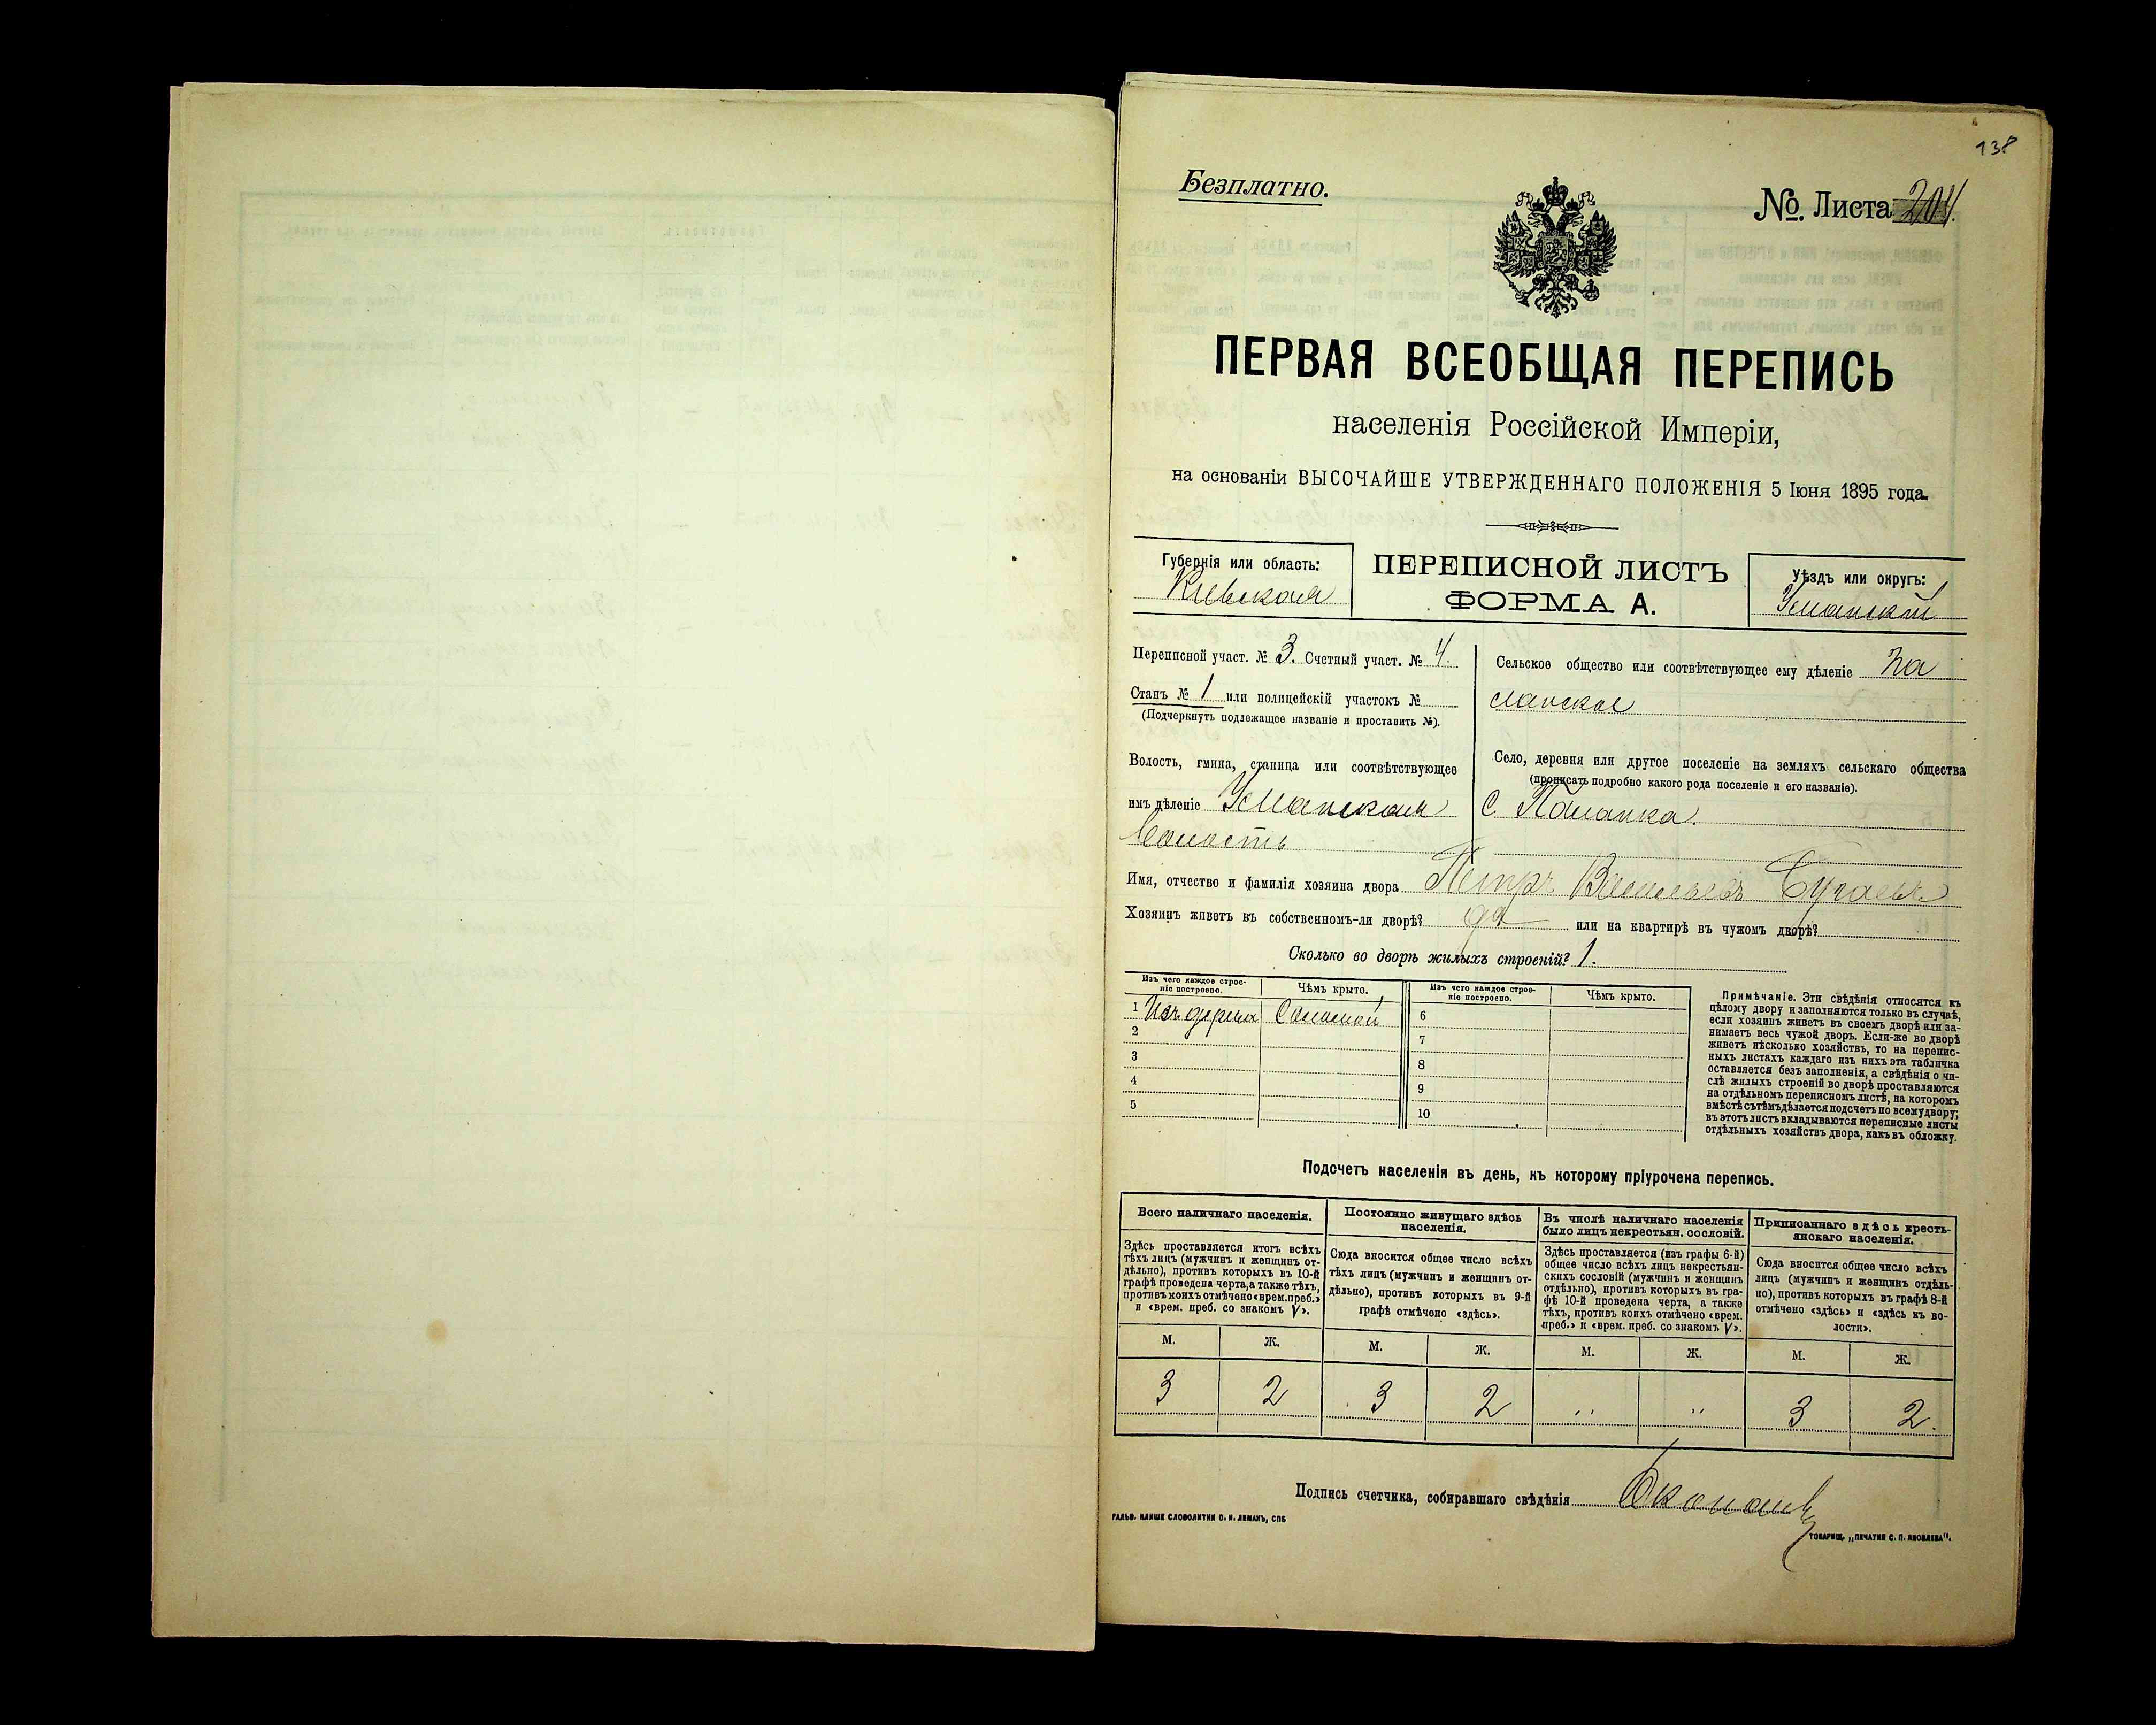 138
Безплатно.
№. Листа 204.
ПЕРВАЯ ВСЕОБЩАЯ ПЕРЕПИСЬ
населенія Россійской Имперіи,
на основаніи ВЫСОЧАЙШЕ УТВЕРЖДЕННАГО ПОЛОЖЕНІЯ 5 Іюня 1895 года.
Губернія или область:
Кіевская
ПЕРЕПИСНОЙ ЛИСТЪ
ФОРМА А.
Уѣздъ или округъ:
Уманскій
Переписной участ. № 3. Счетный участ. № 4.
Станъ № 1 или полицейскій участокъ №
(Подчеркнуть подлежащее названіе и проставить №).
Волость, гмина, станица или соотвѣтствующее
имъ дѣленіе Уманская
волость
Сельское общество или соотвѣтствующее ему дѣленіе По
ланское
Село, деревня или другое поселеніе на земляхъ сельскаго общества
(прописать подробно какого рода поселеніе и его названіе).
с. Полянка.
Имя, отчество и фамилія хозяина двора Петръ Васильевъ
Хозяинъ живетъ въ собственномъ-ли дворѣ? да или на квартирѣ въ чужомъ дворѣ?
Сколько во дворѣ жилыхъ строеній? 1.
Изъ чего каждое строе-
ніе построено.
Чѣмъ крыто.
Изъ чего каждое строе-
ніе построено.
Чѣмъ крыто.
1 Изъ дерева Соломой 6
2 7
3 8
4 9
5 10
Примѣчаніе. Эти свѣдѣнія относятся къ
цѣлому двору и заполняются только въ случаѣ,
если хозяинъ живетъ въ своемъ дворѣ или за-
нимаетъ весь чужой дворъ. Если-же во дворѣ
живетъ нѣсколько хозяйствъ, то на перепис-
ныхъ листахъ каждаго изъ нихъ эта табличка
оставляется безъ заполненія, а свѣдѣнія о чи-
слѣ жилыхъ строеній во дворѣ проставляются
на отдѣльномъ переписномъ листѣ, на которомъ
вмѣстѣ съ тѣмъ дѣлается подсчетъ по всему двору;
въ этотъ листъ вкладываются переписные листы
отдѣльныхъ хозяйствъ двора, какъ въ обложку.
Подсчетъ населенія въ день, къ которому пріурочена перепись.
Всего наличнаго населенія.
Здѣсь проставляется итогъ всѣхъ
тѣхъ лицъ (мужчинъ и женщинъ от-
дѣльно), противъ которыхъ въ 10-й
графѣ проведена черта, а также тѣхъ,
противъ коихъ отмѣчено «врем. преб.»
и «врем. преб. со знакомъ V».
Постоянно живущаго здѣсь
населенія.
Сюда вносится общее число всѣхъ
тѣхъ лицъ (мужчинъ и женщинъ от-
дѣльно), противъ которыхъ въ 9-й
графѣ отмѣчено «здѣсь».
Въ числѣ наличнаго населенія
было лицъ некрестьян. сословій.
Здѣсь проставляется (изъ графы 6-й)
общее число всѣхъ лицъ некрестьян-
скихъ сословій (мужчинъ и женщинъ
отдѣльно), противъ которыхъ въ гра-
фѣ 10-й проведена черта, а также
тѣхъ, противъ коихъ отмѣчено «врем.
преб.» и «врем. преб. со знакомъ V».
Приписаннаго здѣсь кресть-
янскаго населенія.
Сюда вносится общее число всѣхъ
лицъ (мужчинъ и женщинъ отдѣль-
но), противъ которыхъ въ графѣ 8-й
отмѣчено «здѣсь» и «здѣсь къ во-
лости».
М. Ж. М. Ж. М. Ж. М. Ж.
3 2 3 2 " " 3 2.
Подпись счетчика, собиравшаго свѣдѣнія
ГАЛЬВ. КЛИШЕ СЛОВОЛИТНИ О. И. ЛЕМАНЪ, СПБ
ТОВАРИЩ. „ПЕЧАТНЯ С. П. ЯКОВЛЕВА".